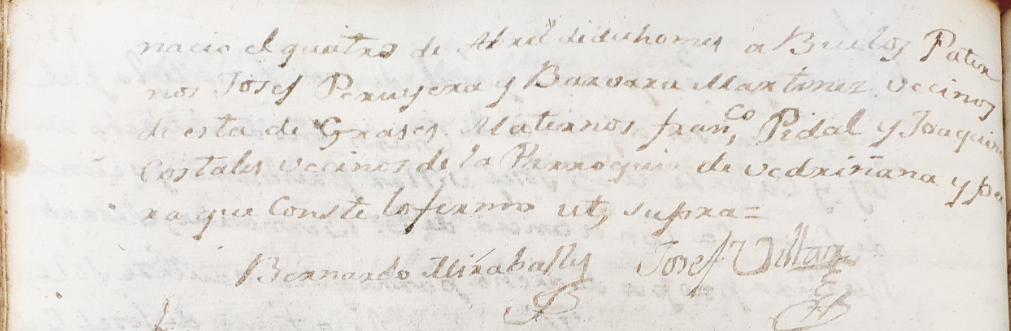 nacio el quatro de Abril de dicho mes a Buelos Pater
nos Josef Peruyera y Barvara Martinez vecinos
de esta de Grases Maternos Fran,co Pidal y Joaquin
Costales vecinos de la Parroquia de vedriñana y pa
ra que Conste lo firmo utz supra=
Bernardo Miraballes Josef Villar